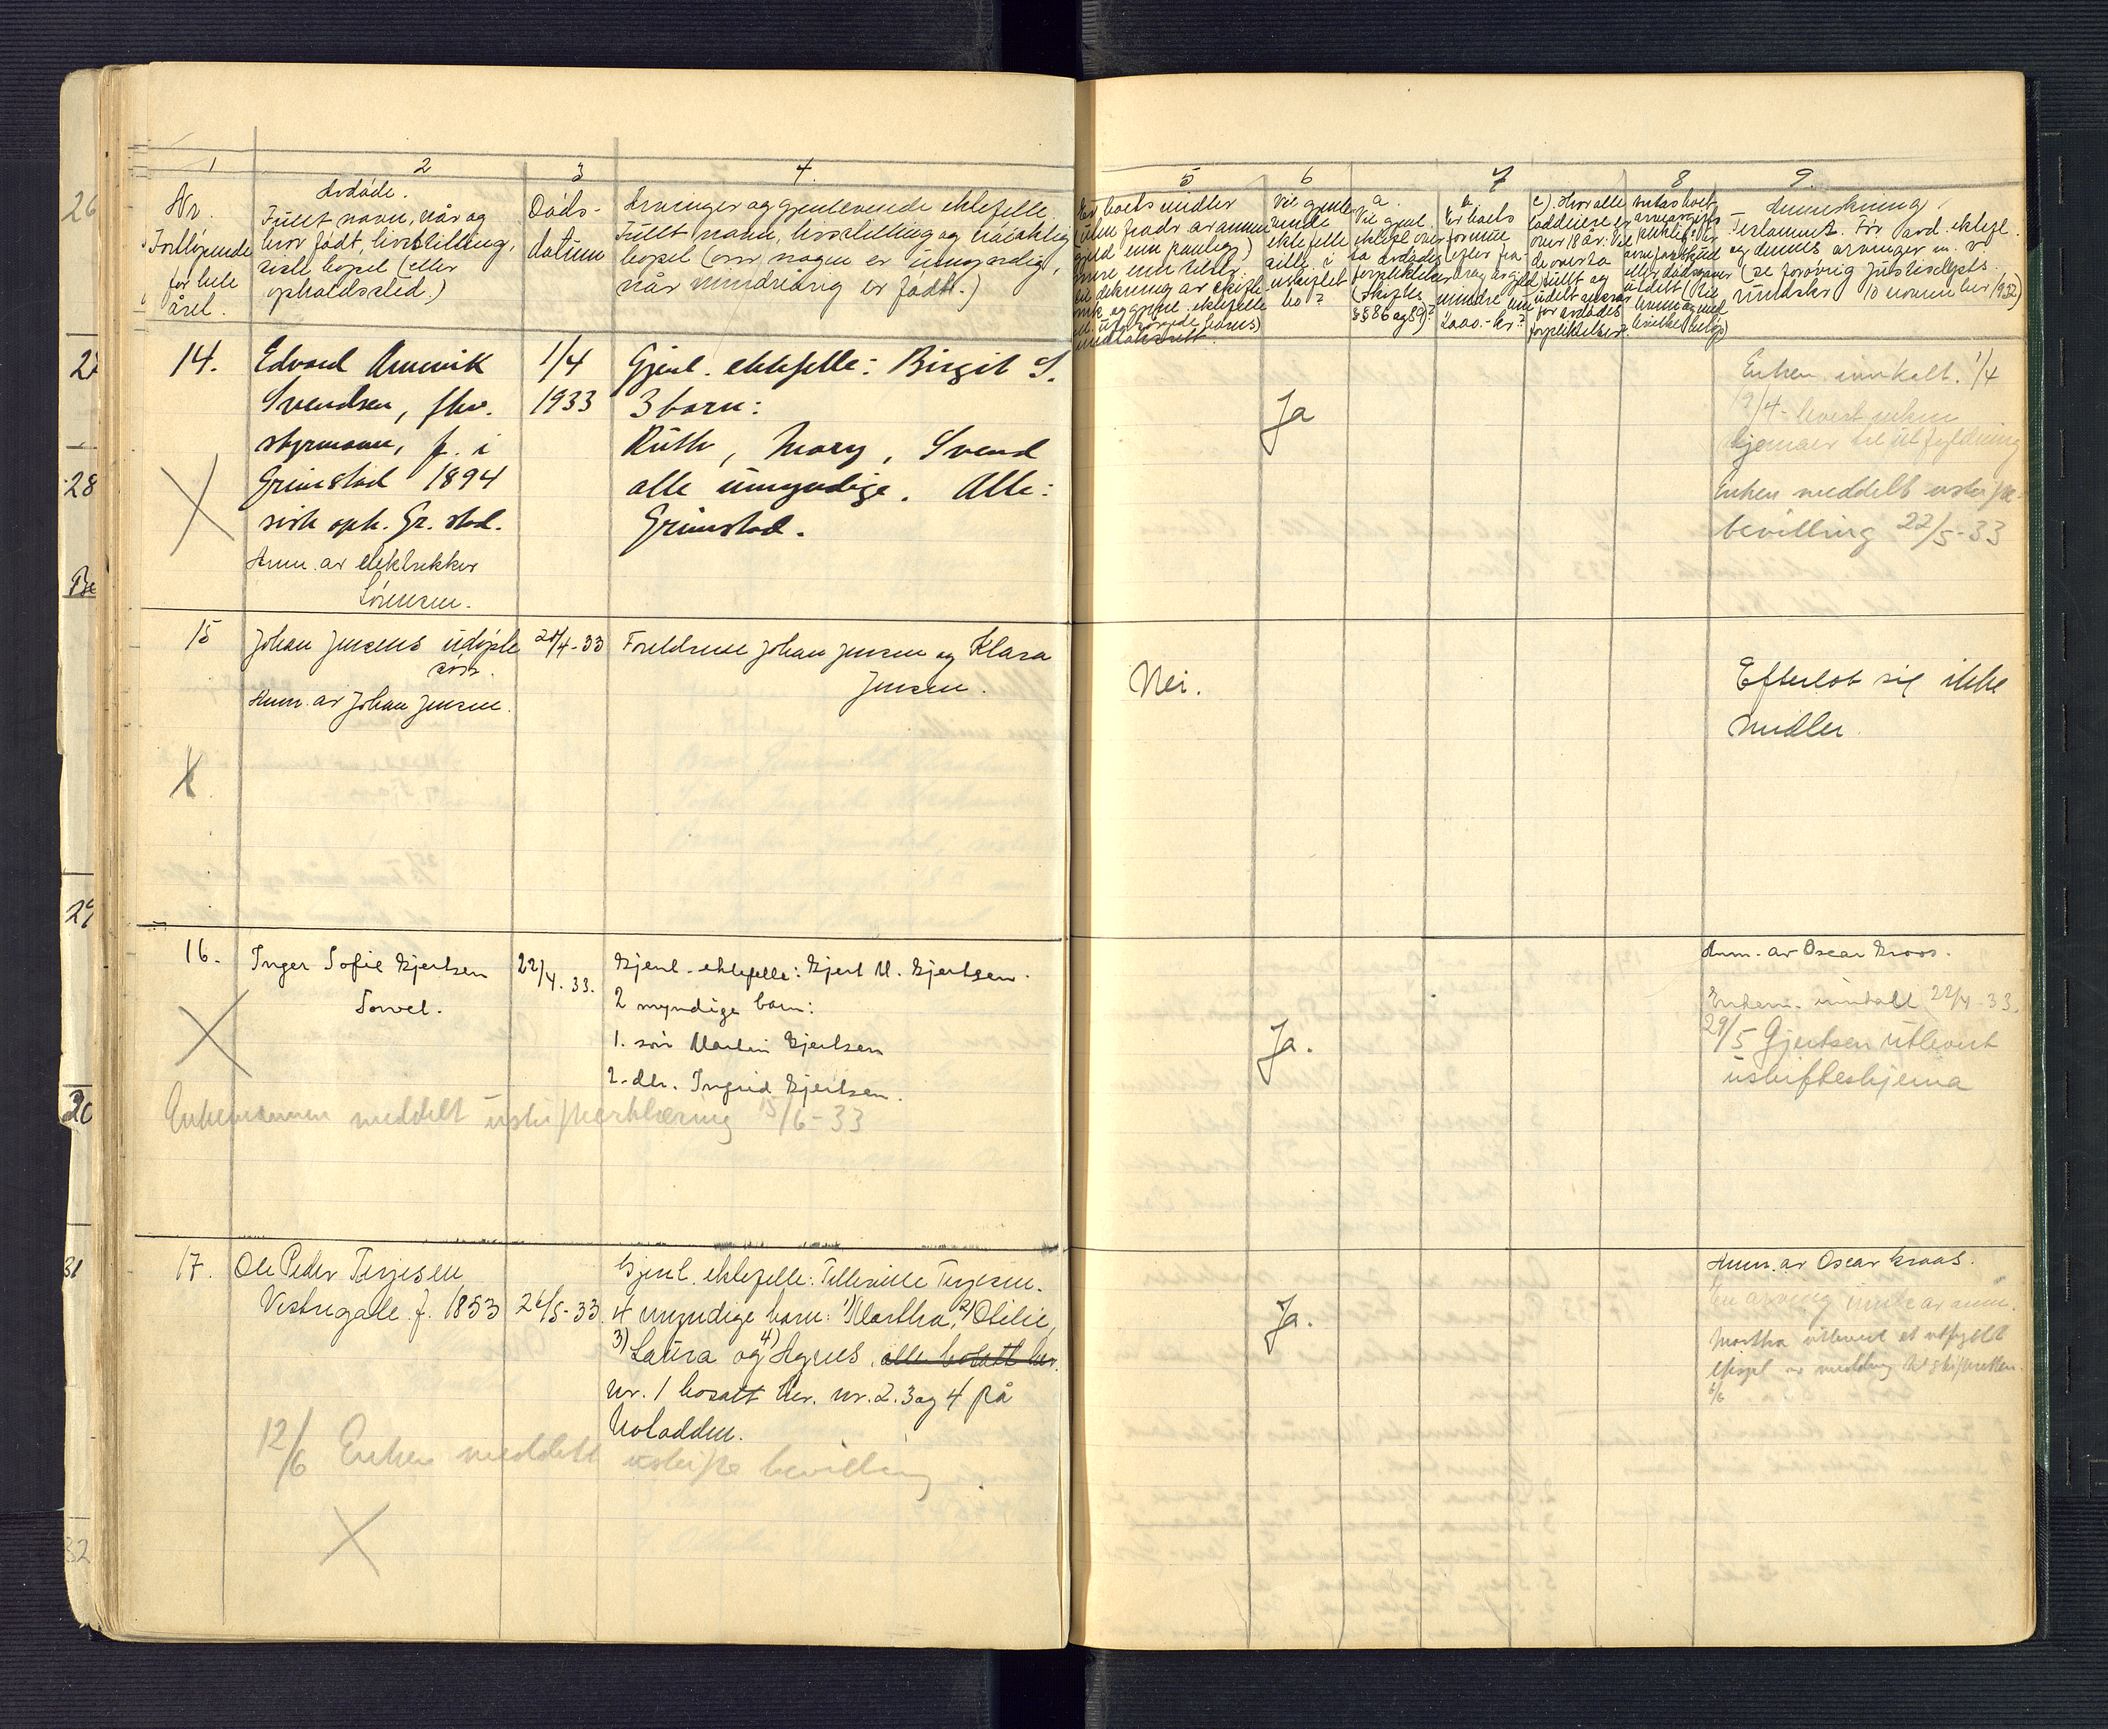 1 2 3 4.
Nr. Fortløpende for hele året.
Avdøde.
Fullt navn, når og
hvor født, livsstilling,
siste bopel (eller
opholdssted.)
Døds-
datum
Arvinger og gjenlevende ektefelle.
Fullt navn, livsstilling og nøiaktig
bopel (om nogen er umyndig,
når vedk. er født.)
14.
Edvard
Svendsen, fhv.
styrmann, f. i
Grimstad 1894
sist oph. Gr.stad.
Anm. av elektriker
Sørensen.
1/4
1933
Gjenl. ektefelle: Birgit S.
3 barn:
Ruth, Mary, Svend
alle umyndige. Alle:
Grimstad.
15
Johan Jensens udøpte
sønn.
Anm. av Johan Jensen.
/4-33
Foreldrene Johan Jensen og Klara
Jensen.
16.
Inger Sofie Gjertsen
Sorvel.
22/4.33.
Gjenl. ektefelle: Gjert M. Gjertsen.
2 myndige barn:
1. søn Martin Gjertsen
2. dtr. Ingrid Gjertsen.
Enkemannen meddelt uskifteerklæring 15/6-33
17.
Ole Peder Terjesen
Vestregate. f. 1853
/5-33.
Gjenl. ektefelle: Terjesen.
4 myndige barn: 1) Martha, 2) Otilie,
3) Laura og 4) Agnes, alle bosatt her.
nr. 1 bosatt her. nr. 2. 3 og 4 på
Notodden.
12/6 Enken meddelt uskiftebevilling.
5 6 7 8 9.
Har boets midler
Vil gjenle-
vende
ektefelle
sitte i
uskiftet
bo?
a.
Vil gjenl.
ektefelle over-
ta avdødes
forpliktelser
(Skiftel.
§§ 86 og 89)?
Er boets
formue
mindre enn
2000.- kr?
c) Hvor alle
loddeiere er
over 18 år. Vil
de overta
for avdødes
forpliktelser
Anmerkning.
Testament. For avd. ektef.
og dennes arvinger m. v.
(se forøvrig Justisdepts.
rundskr. 10 november 1932)
Ja
Enken innkalt. 1/4
19/4- levert enken
skjemaer til utfyldning
Enken meddelt uskifte-
bevilling 22/5-33
Nei.
Efterlot sig ikke
midler.
Ja.
Anm. av Oscar Kroos.
Enkem. innkalt 22/4-33.
29/5 Gjertsen utlevert
uskifteskjema
Ja.
Anm. av Oscar Kroos.
Martha utlevert et utfyllt
6/6
26
27
28
29
30
31
32